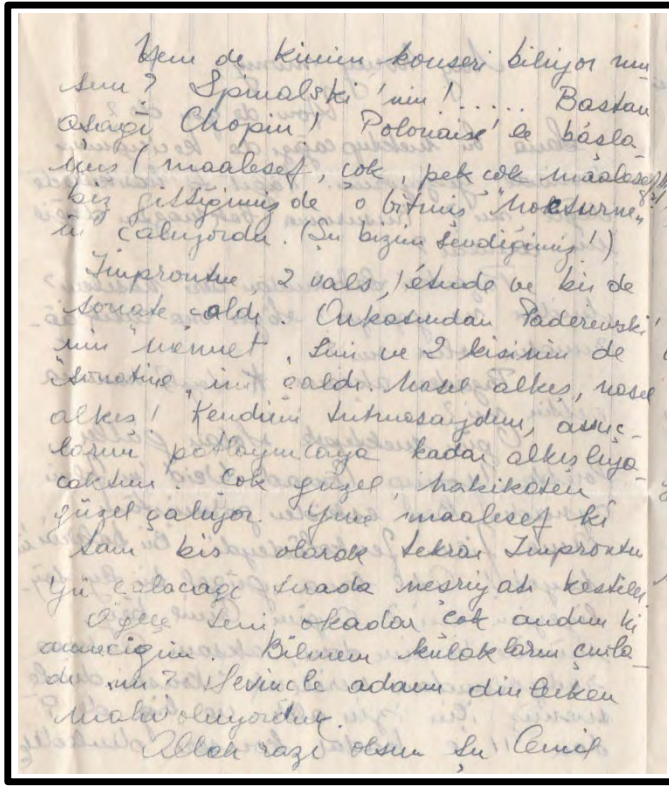 Hem de kimin konseri biliyor mu
sun? Spinalski'nin!..... Baştan
aşağı Chopin! Polonaise'le başla-
mış (maalesef, çok, pek çok maalesef ki
biz gittiğimizde o bitmiş "Nocturne„
ü çalıyordu. (Şu bizim sevdiğimiz!)
Impromtue 2 vals, 1 étude ve bir de
sonate çaldı. Arkasından Paderevski'
nin "menuet„ sini ve 2 kişinin de
"Sonatine„ ini çaldı. Nasıl alkış, nasıl
alkış! Kendimi tutmasaydım, avuç-
larım patlayıncaya kadar alkışlıya-
caktım. Çok güzel, hakikaten
güzel çalıyor. Yine maalesef ki
tam bis olarak tekrar Impromtu
yü çalacağı sırada neşriyatı kestiler.
O gece seni okadar çok andım ki
anneciğim. Bilmem kulakların çınla-
dı mı? Sevinçle adamı dinlerken
mahvoluyordum.
Allah razı olsun şu Cemil